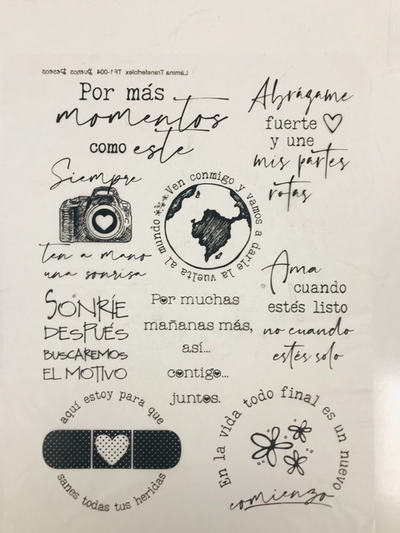 Lámina Transferflex TF1-004 Buenos Deseos
Por más
momentos
como este
Abrágame
fuerte
y une
mis partes
rotas
Siempre
ten a mano
una sonrisa
Ven conmigo y vamos a darle la vuelta al mundo
Ama
cuando
estés listo
no cuando
estés solo
SONRÍE
DESPUÉS
BUSCAREMOS
EL MOTIVO
Por muchas
mañanas más,
así...
contigo...
juntos.
aquí estoy para que
sanes todas tus heridas
En la vida todo final es un nuevo
comienzo